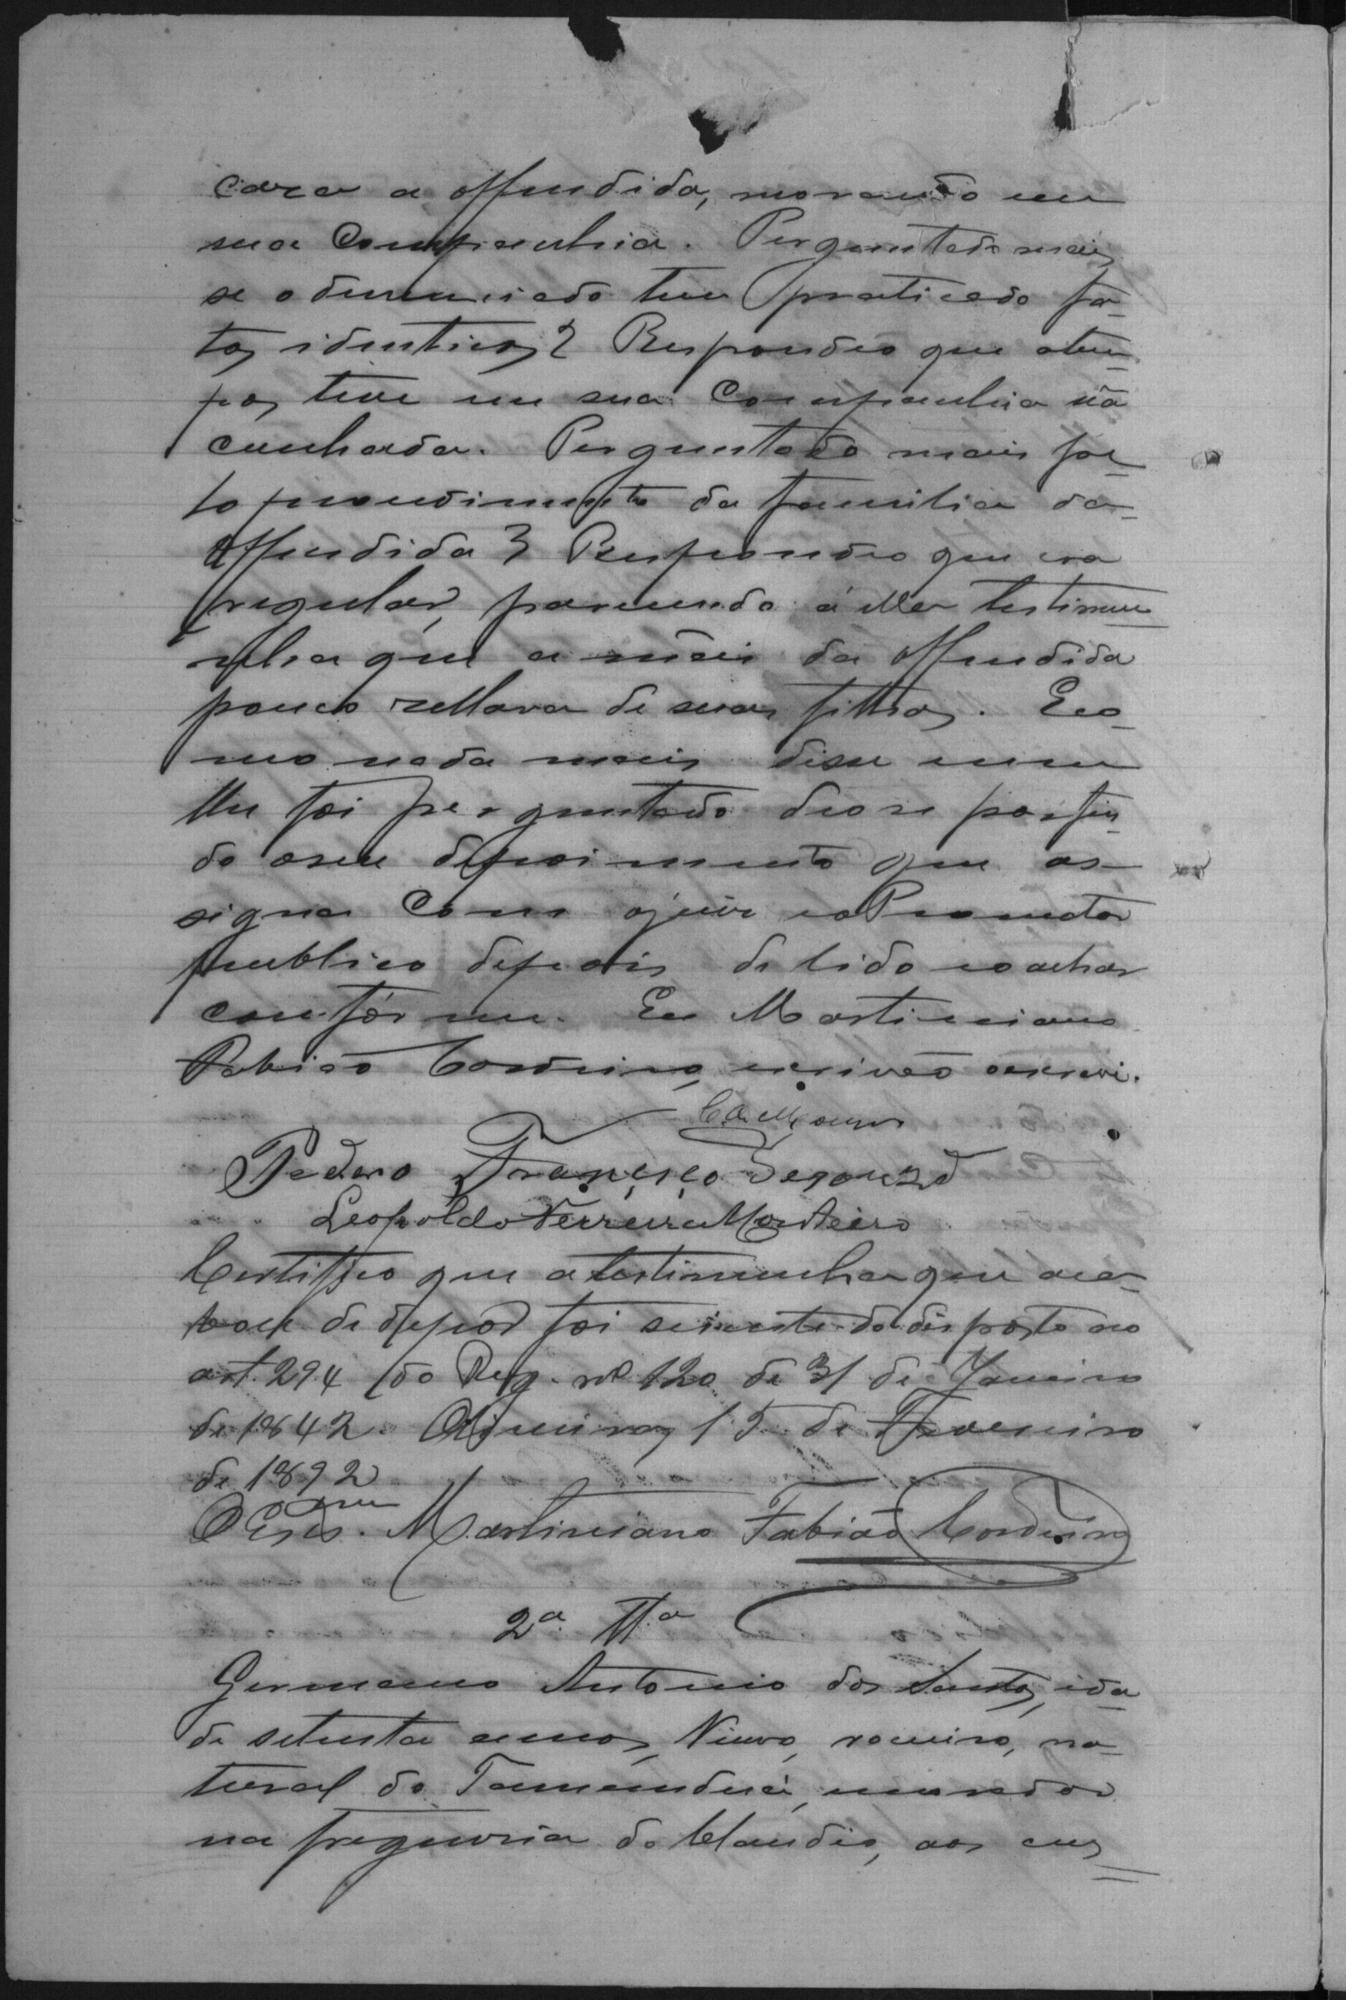 cara a offendida, morando em
sua Companhia. Perguntado mais
se o denunciado tem praticado fa-
tos identicos? Respondeo que
teve em sua Companhia
cunhada. Perguntado mais
procedimento da familia da
offendida? Respondeo que era
regular, parecendo á ella testimu-
nha que a mãi da offendida
pouco zellava de suas filhas. E co-
mo nada mais disse nem
lhe foi perguntado deo se por fin-
do o seu depoimento que as-
signa com o juiz e o Promotor
publico depois de lido e o achar
confórme. Eu Martiniano
Fabião Cordeiro, escrivão o escrevi.
Pedero Françisco
Leopoldo Ferreira Monteiro
Certifico que a testimunha que aca-
bou de depor foi sciente do disposto no
art. 294 do Reg. nº 120 de 31 de Janeiro
de 1842. 15 de Fevereiro
de 1892
O Escr.am Martiniano Fabião Cordeiro
2ª Ttª
Germano Antonio dos Santos, ida-
de setenta annos, Viuvo, roceiro, na-
tural do Tamanduá, morador
na freguesia do Claudio, aos cus-